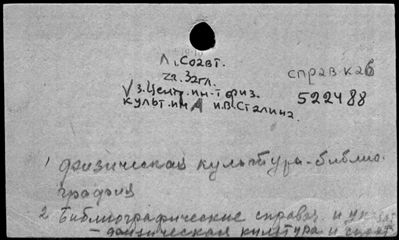 Л. Соавт.
za. Загл.
V 3. Центр. ин-т физ.
культ. им. И. В. Сталина.
справ каб
522488
1 физическая культура - библио-
графия
2. Библиографические справоч. и ук
- физическая культура и спорт